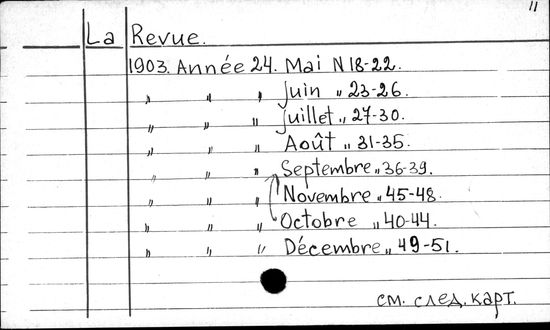 11
La Revue.
1903. Année 24. Mai N 18-22.
" " " Juin " 23-26.
" " " Juillet " 27-30.
" " " Août " 31-35.
" " " Septembre " 36-39.
" " " Novembre " 45-48.
" " " Octobre " 40-44.
" " " Décembre " 49-51.
см. след. карт.